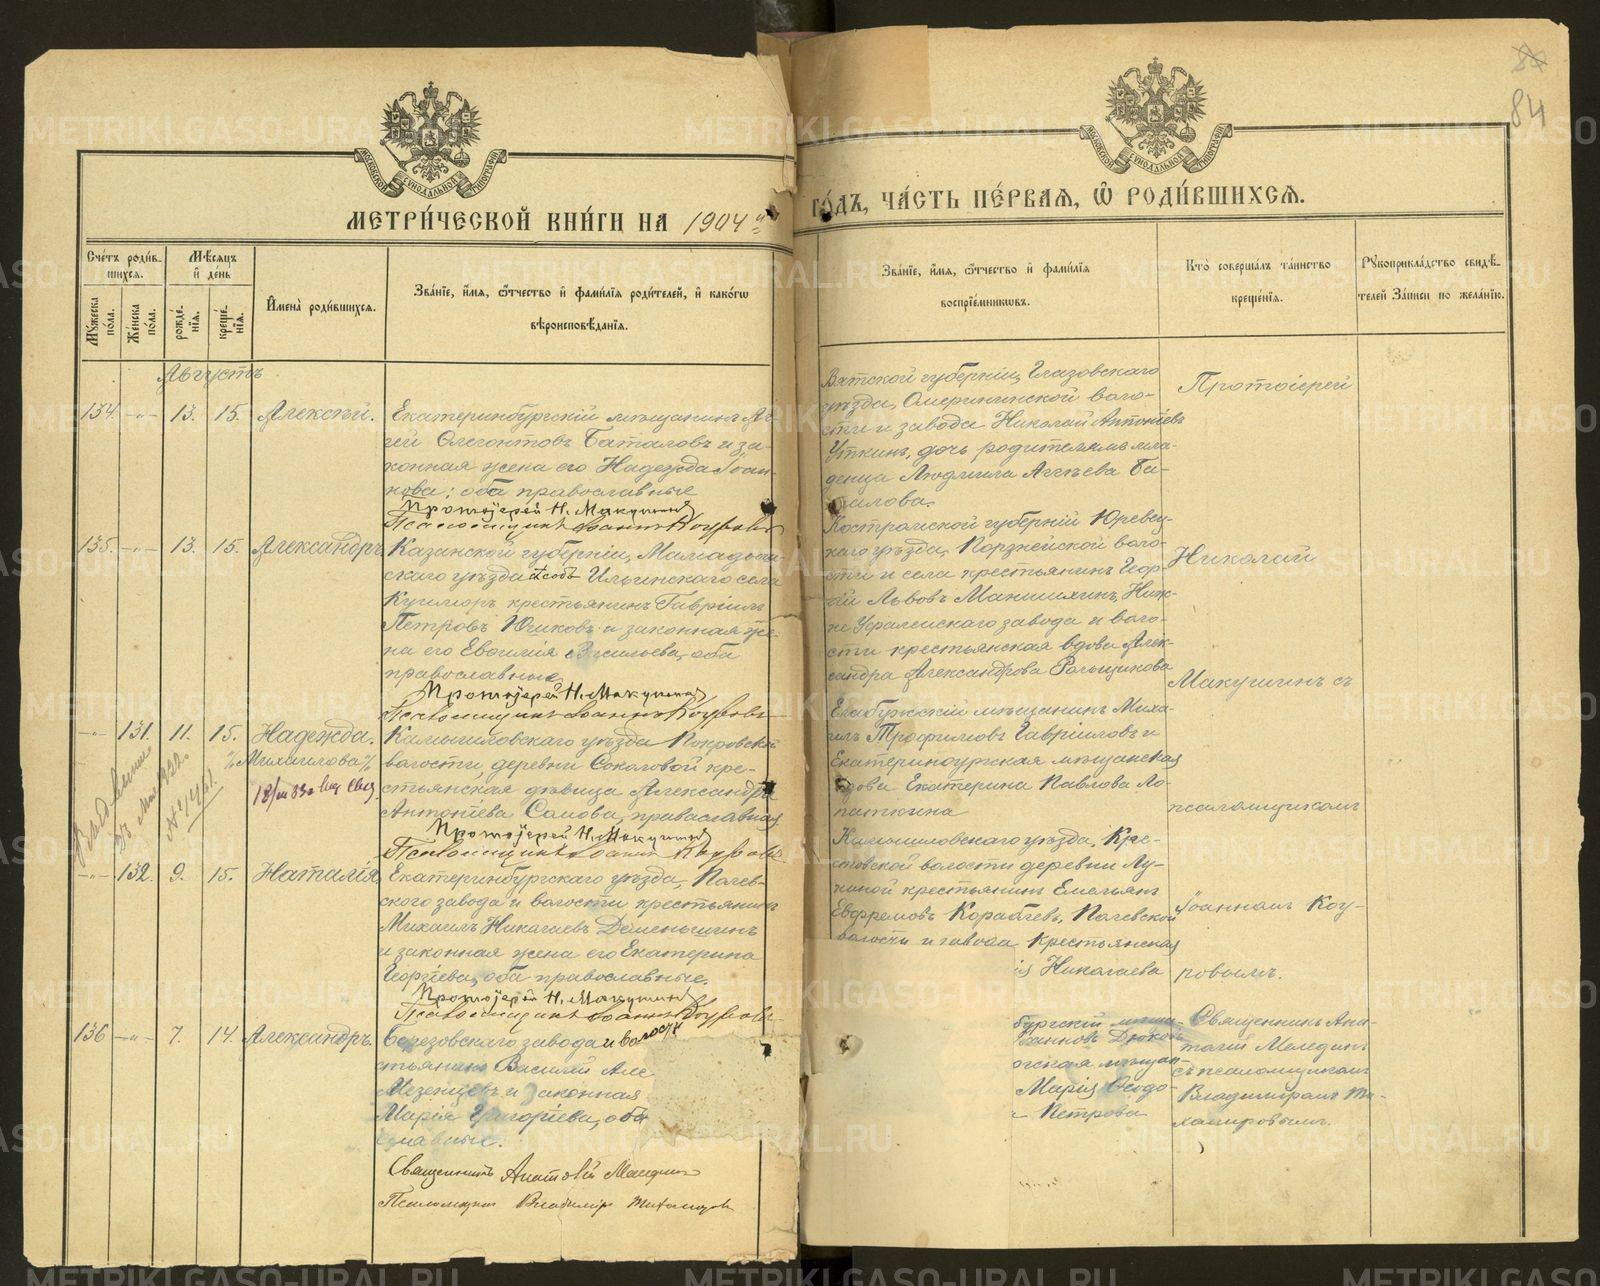 84
МОСКОВСКОЙ СУНОДАЛЬНОЙ ТИПОГРАФІИ
МОСКОВСКОЙ СУНОДАЛЬНОЙ ТИПОГРАФІИ
МЕТРИ́ЧЕСКОЙ КНИ́ГИ НА 1904 й
ГО́ДЪ, ЧА́СТЬ ПЕ́РВАЯ, Ѡ РОДИ́ВШИХСЯ.
Счетъ роди́в-
шихся.
Мꙋжеска пола.
Же́нска пола.
Мѣсяцъ и де́нь
рожде-нія.
креще-нія.
И҆мена̀ роди́вшихся.
Зва́ніе, и҆́мя, ѻ҆́тчество и҆ фами́лія роди́телей, и҆ како́гѡ
вѣроисповѣ́данія.
Зва́ніе, и҆́мя, ѻ҆́тчество и҆ фами́лія
воспріе́мникѡвъ.
Кто̀ соверша́лъ та́инство
креще́нія.
Рꙋкоприкла́дство свидѣ́-
телей за́писи по жела́нію.
Августъ
134 -"- 13. 15. Алексѣй.
Екатеринбургскій мѣщанинъ Аг-
гей Олегонтовъ Баталовъ и за-
конная жена его Надежда Іоан-
нова; оба православные
Протоіерей Н. Макушинъ
Псаломщикъ Іоаннъ Коуровъ
Вятской губерніи, Глазовскаго
уѣзда, Омернинской воло-
сти и завода Николай Антоніевъ
Уткинъ, дочь родителямъ мла-
денца Людмила Аггѣева Ба-
талова.
Протоіерей
135. -"- 13. 15. Александръ
Казанской губерніи, Мамадыш-
скаго уѣзда Ильинскаго села
крестьянинъ Гавріилъ
Петровъ Юшковъ и законная же-
на его Евфимія Васильева, оба
православные
Протоіерей Н. Макушинъ
Псаломщикъ Іоаннъ Коуровъ
Костромской губерніи Юревец-
каго уѣзда, Порзнейской воло-
сти и села крестьянинъ Геор-
гій Львовъ Маншихинъ, Ниж-
не Уфалейскаго завода и воло-
сти крестьянская вдова Алек-
сандра Александрова Рольщикова
Николай
-"- 131. 11. 15. Надежда.
"Михаилова"
Камышловскаго уѣзда Покровской
волости, деревни Соколовой кре-
стьянская дѣвица Александра
Антоніева Сомова, православная
Протоіерей Н. Макушинъ
Псаломщикъ Іоаннъ Коуровъ
Елабужскій мѣщанинъ Миха-
илъ Трофимовъ Гавріиловъ и
Екатеринбургская мѣщанская
вдова Екатерина Павлова Ло-
паткина
Макушинъ съ
псаломщикомъ
-"- 132. 9. 15. Наталія
Екатеринбургскаго уѣзда, Полев-
ского завода и волости крестьянинъ
Михаилъ Николаевъ Деменьшинъ
и законная жена его Екатерина
Георгіева, оба православные.
Протоіерей Н. Макушинъ
Псаломщикъ Іоаннъ Коуровъ
Камышловскаго уѣзда, Кре-
стовской волости деревни Лу-
киной крестьянинъ Емельянъ
Евфремовъ Корабаевъ, Полевской
волости и завода крестьянская
Николаева
Іоанномъ Коу-
ровымъ.
136 -"- 7. 14. Александръ.
Березовскаго завода и волости
стьянинъ Василій Але
Мезенцевъ и законная
Марія Григоріева, оба
славные.
Священникъ Анатолій Меледин
Псаломщикъ Владиміръ Тихомировъ
бургскій мѣща-
Іоанновъ Дрюков
мѣщан-
Марія Ѳеодо-
Петрова
Священникъ Ана-
толій Меледин
съ псаломщикомъ
Владиміромъ Ти-
хомировымъ.